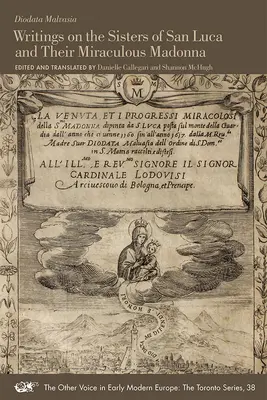 Diodata Malvasia
Writings on the Sisters of San Luca
and Their Miraculous Madonna
EDITED AND TRANSLATED BY Danielle Callegari and Shannon McHugh
S M
LA VENVTA ET I PROGRESSI MIRACOLOSI
della S. MADONNA dipinta da S. LVCA posta sul monte della Guar
dia dall'anno che ci venne 1160 sin all'anno 1617. dalla M. Reu.
Madre Suor DIODATA Maluasia dell'Ordine di S. Dom.
in S. Mattia raccolti e distesi.
ALL'ILL. E REV. SIGNORE IL SIGNOR
CARDINALE LODOVISI
Arciuescouo di Bologna, et Prencipe.
The Other Voice in Early Modern Europe: The Toronto Series, 38